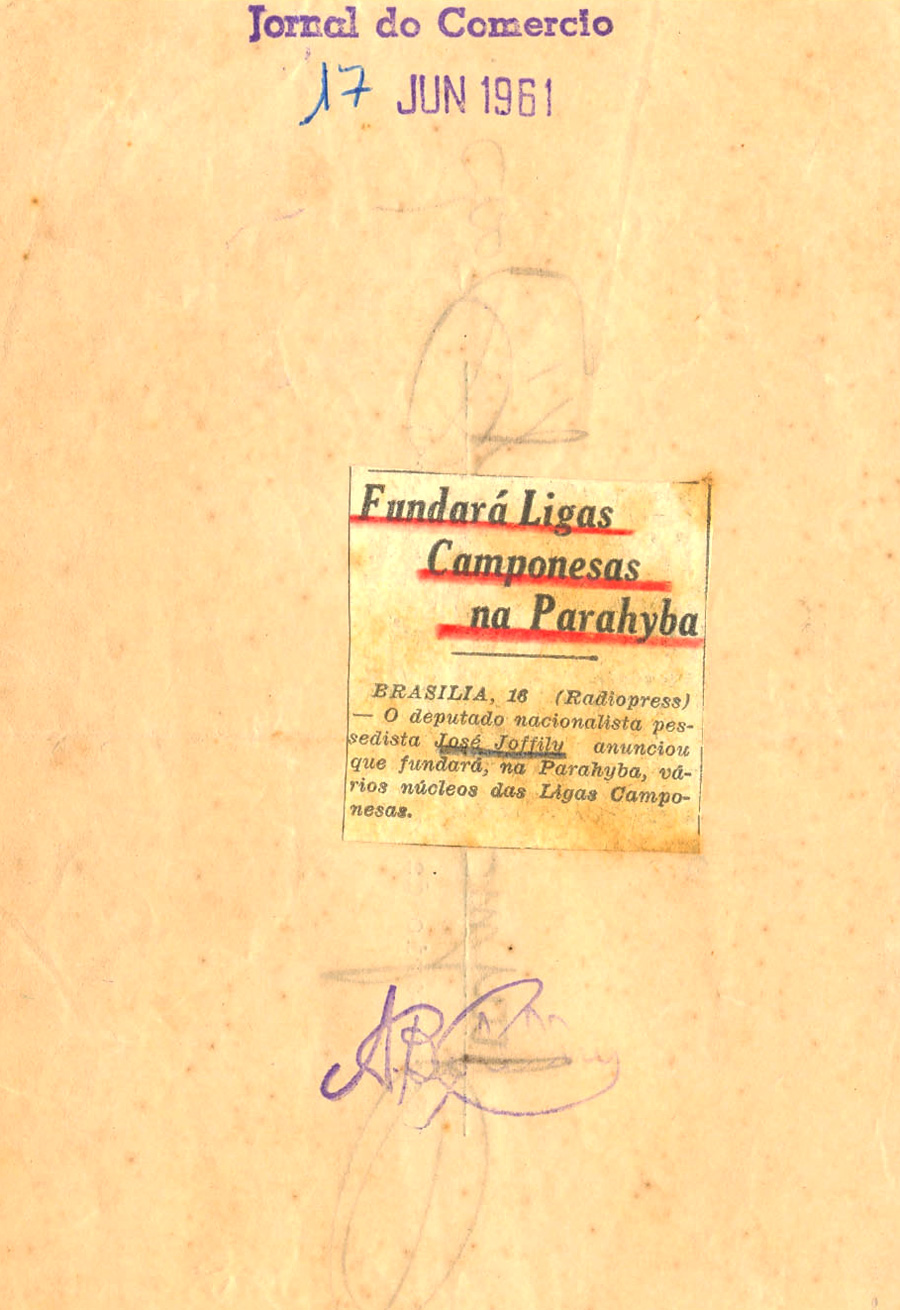 Jornal do Comercio
17 JUN 1961
Fundará Ligas
Camponesas
na Parahyba
BRASILIA, 16 (Radiopress)
— O deputado nacionalista pes-
sedista José Joffily anunciou
que fundará, na Parahyba, vá-
rios núcleos das Ligas Campo-
nesas.